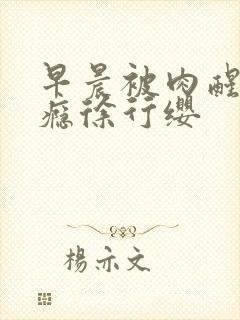 早晨被肉醒
瘾徐行缨
杨亦文